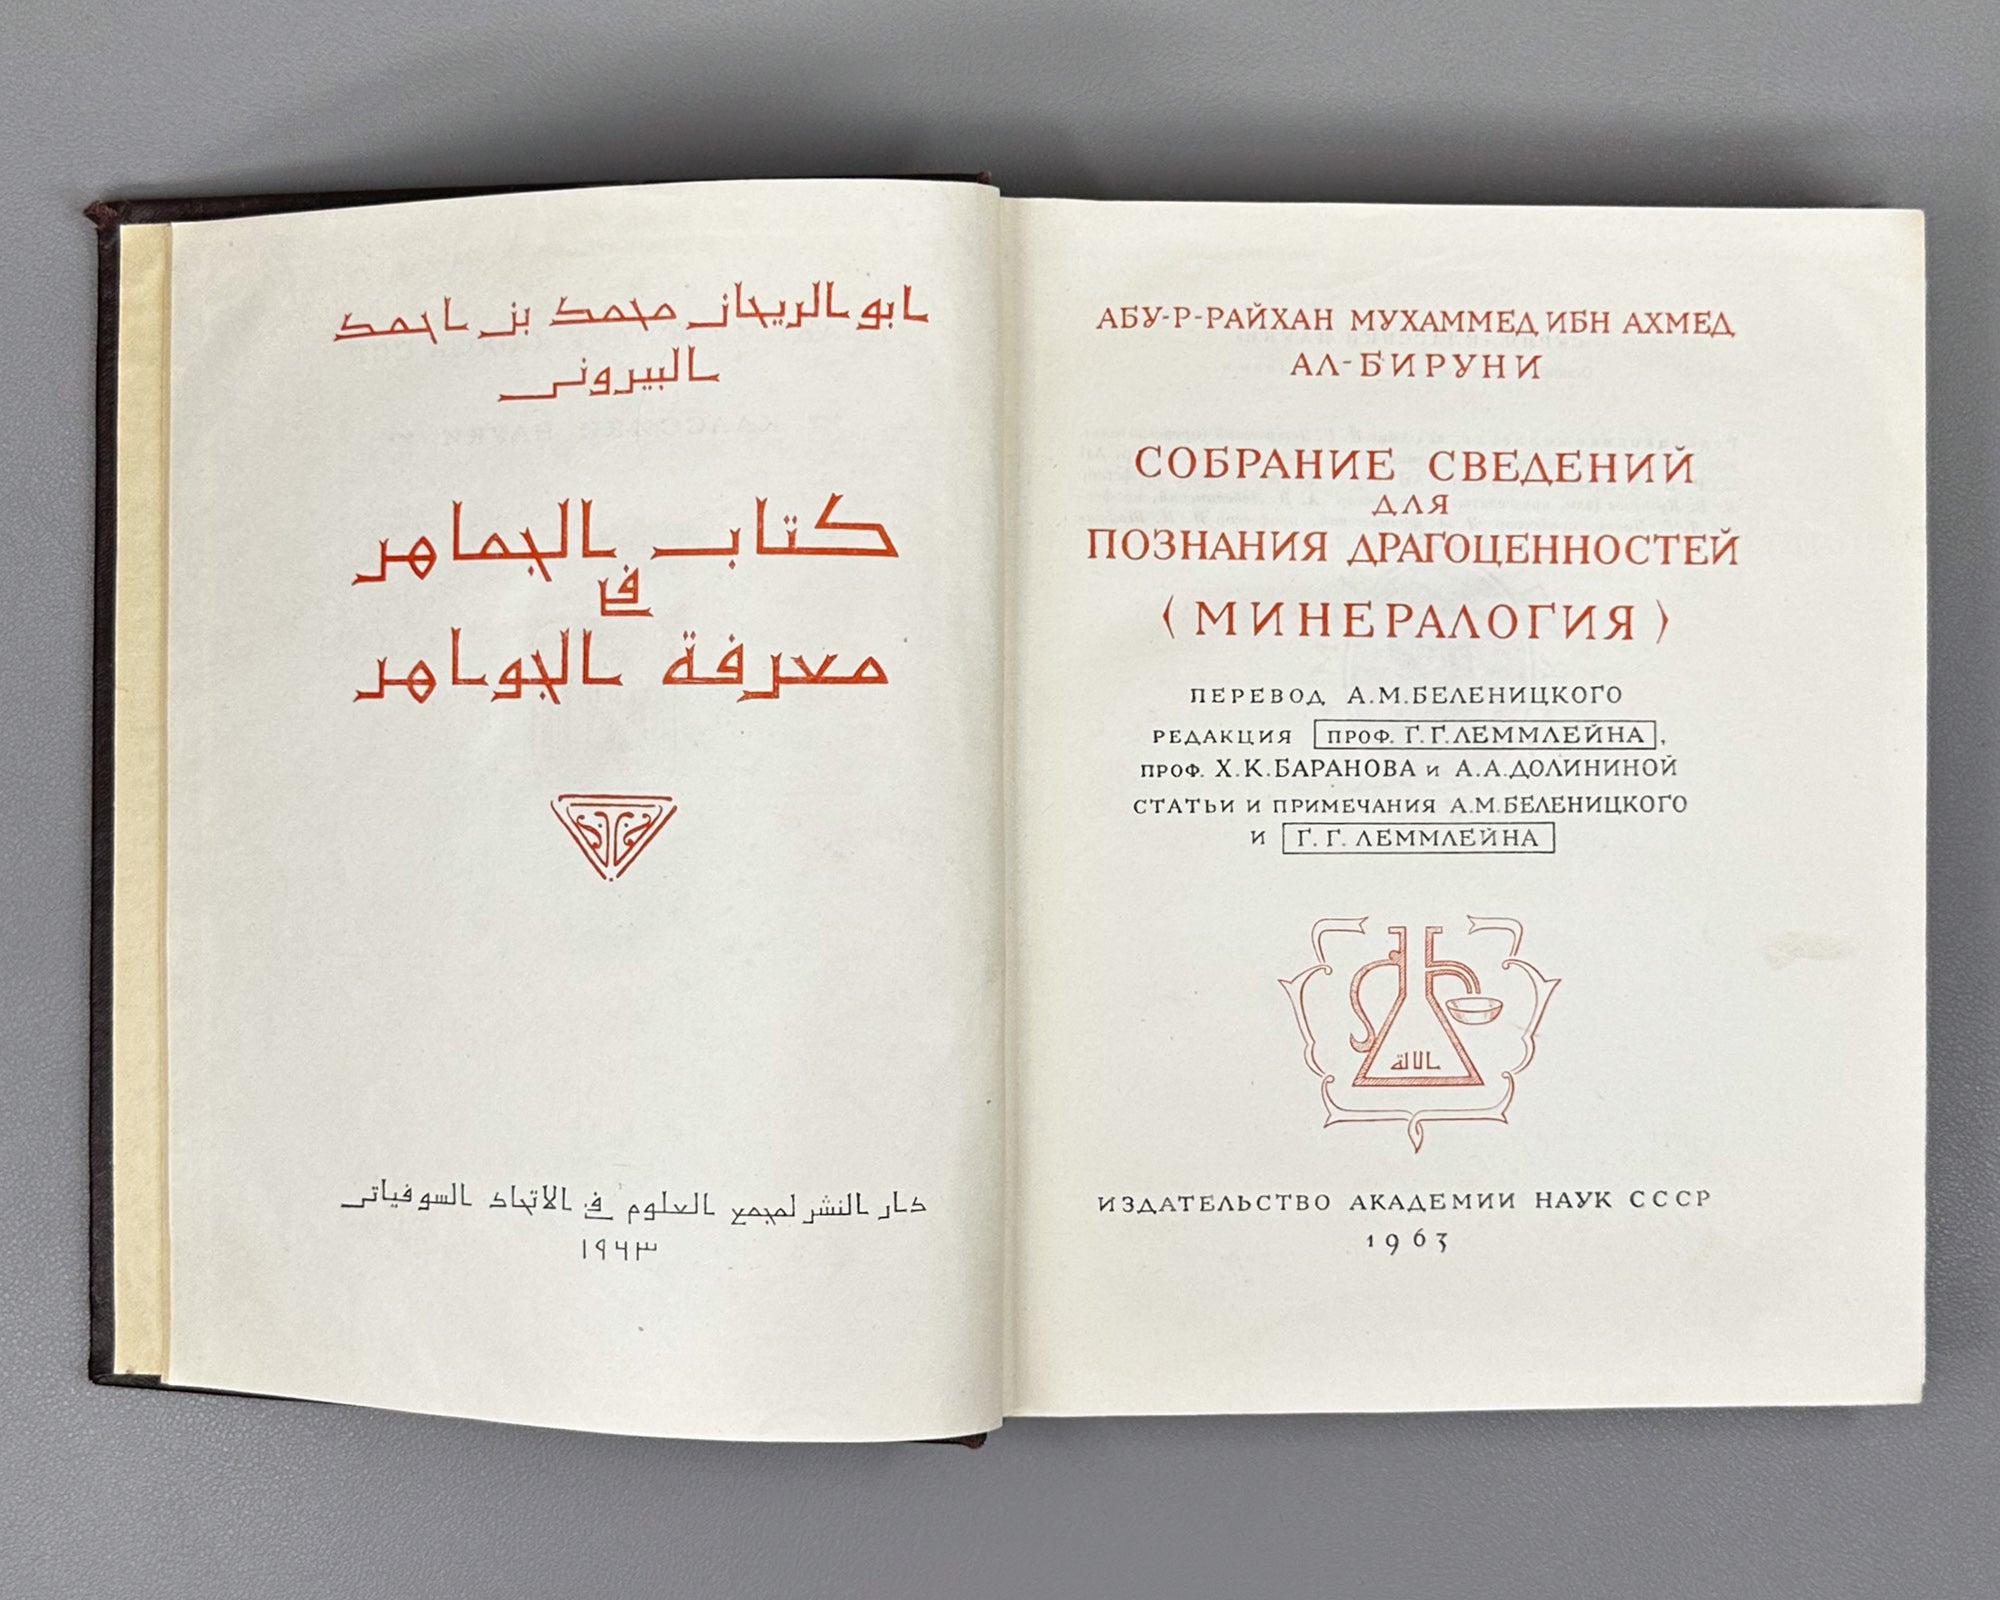 ابو الريحان محمد بن احمد
البيرونى
كتاب الجماهر
فى
معرفة الجواهر
دار النشر لمجمع العلوم فى الاتحاد السوفياتى
١٩٦٣
АБУ-Р-РАЙХАН МУХАММЕД ИБН АХМЕД
АЛ-БИРУНИ
СОБРАНИЕ СВЕДЕНИЙ
ДЛЯ
ПОЗНАНИЯ ДРАГОЦЕННОСТЕЙ
(МИНЕРАЛОГИЯ)
ПЕРЕВОД А.М.БЕЛЕНИЦКОГО
РЕДАКЦИЯ ПРОФ. Г.Г.ЛЕММЛЕЙНА,
ПРОФ. Х.К.БАРАНОВА И А.А.ДОЛИНИНОЙ
СТАТЬИ И ПРИМЕЧАНИЯ А.М.БЕЛЕНИЦКОГО
И Г.Г. ЛЕММЛЕЙНА
ИЗДАТЕЛЬСТВО АКАДЕМИИ НАУК СССР
1963